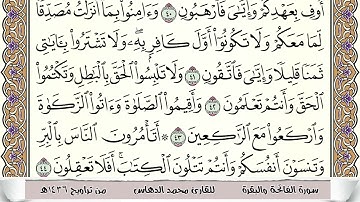 أَوْفِ بِعَهْدِكُمْ وَإِيَّٰىَ فَٱرْهَبُونِ ٤٠ وَءَامِنُوا۟ بِمَآ أَنزَلْتُ مُصَدِّقًا
لِّمَا مَعَكُمْ وَلَا تَكُونُوٓا۟ أَوَّلَ كَافِرٍۭ بِهِۦ ۖ وَلَا تَشْتَرُوا۟ بِـَٔايَٰتِى
ثَمَنًا قَلِيلًا وَإِيَّٰىَ فَٱتَّقُونِ ٤١ وَلَا تَلْبِسُوا۟ ٱلْحَقَّ بِٱلْبَٰطِلِ وَتَكْتُمُوا۟
ٱلْحَقَّ وَأَنتُمْ تَعْلَمُونَ ٤٢ وَأَقِيمُوا۟ ٱلصَّلَوٰةَ وَءَاتُوا۟ ٱلزَّكَوٰةَ
وَٱرْكَعُوا۟ مَعَ ٱلرَّٰكِعِينَ ٤٣ ۞ أَتَأْمُرُونَ ٱلنَّاسَ بِٱلْبِرِّ
وَتَنسَوْنَ أَنفُسَكُمْ وَأَنتُمْ تَتْلُونَ ٱلْكِتَٰبَ ۚ أَفَلَا تَعْقِلُونَ ٤٤
سورة الفاتحة والبقرة للقارئ محمد الدهاس من تراويح ١٤٣٦هـ